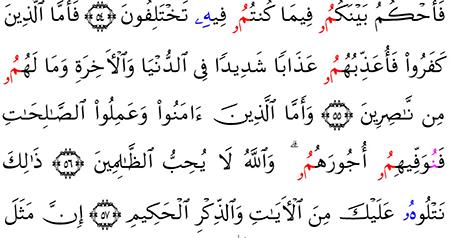 فَأَحْكُمُ بَيْنَكُمُۥ فِيمَا كُنتُمُۥ فِيهِۦ تَخْتَلِفُونَ ۝٥٤ فَأَمَّا ٱلَّذِينَ
كَفَرُواْ فَأُعَذِّبُهُمُۥ عَذَابًا شَدِيدًا فِى ٱلدُّنْيَا وَٱلْأَخِرَةِ وَمَا لَهُمُۥ
مِن نَّـٰصِرِينَ ۝٥٥ وَأَمَّا ٱلَّذِينَ ءَامَنُواْ وَعَمِلُواْ ٱلصَّـٰلِحَـٰتِ
فَنُوَفِّيهِمُۥ أُجُورَهُمُۥ ۗ وَٱللَّهُ لَا يُحِبُّ ٱلظَّـٰلِمِينَ ۝٥٦ ذَٰلِكَ
نَتْلُوهُۥ عَلَيْكَ مِنَ ٱلْأَيَـٰتِ وَٱلذِّكْرِ ٱلْحَكِيمِ ۝٥٧ إِنَّ مَثَلَ